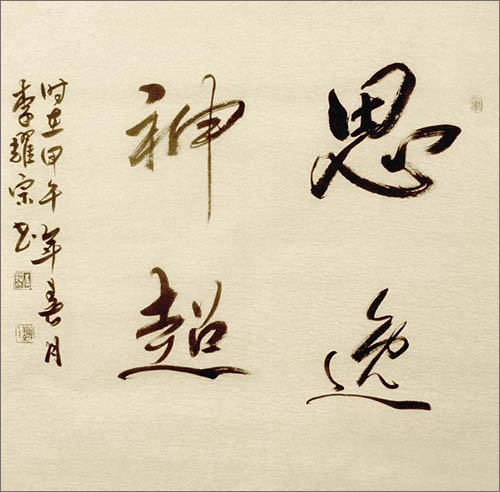 思逸
神超
时在甲午年春月
李耀宗书